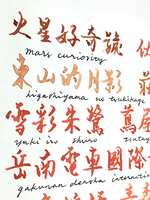 火星好奇號
mars curiosity
東山的月影 莊
higashiyama no tsukikage
雪影朱鷺
yuki iro shuro
岳南電車國際
gakunan densha internati